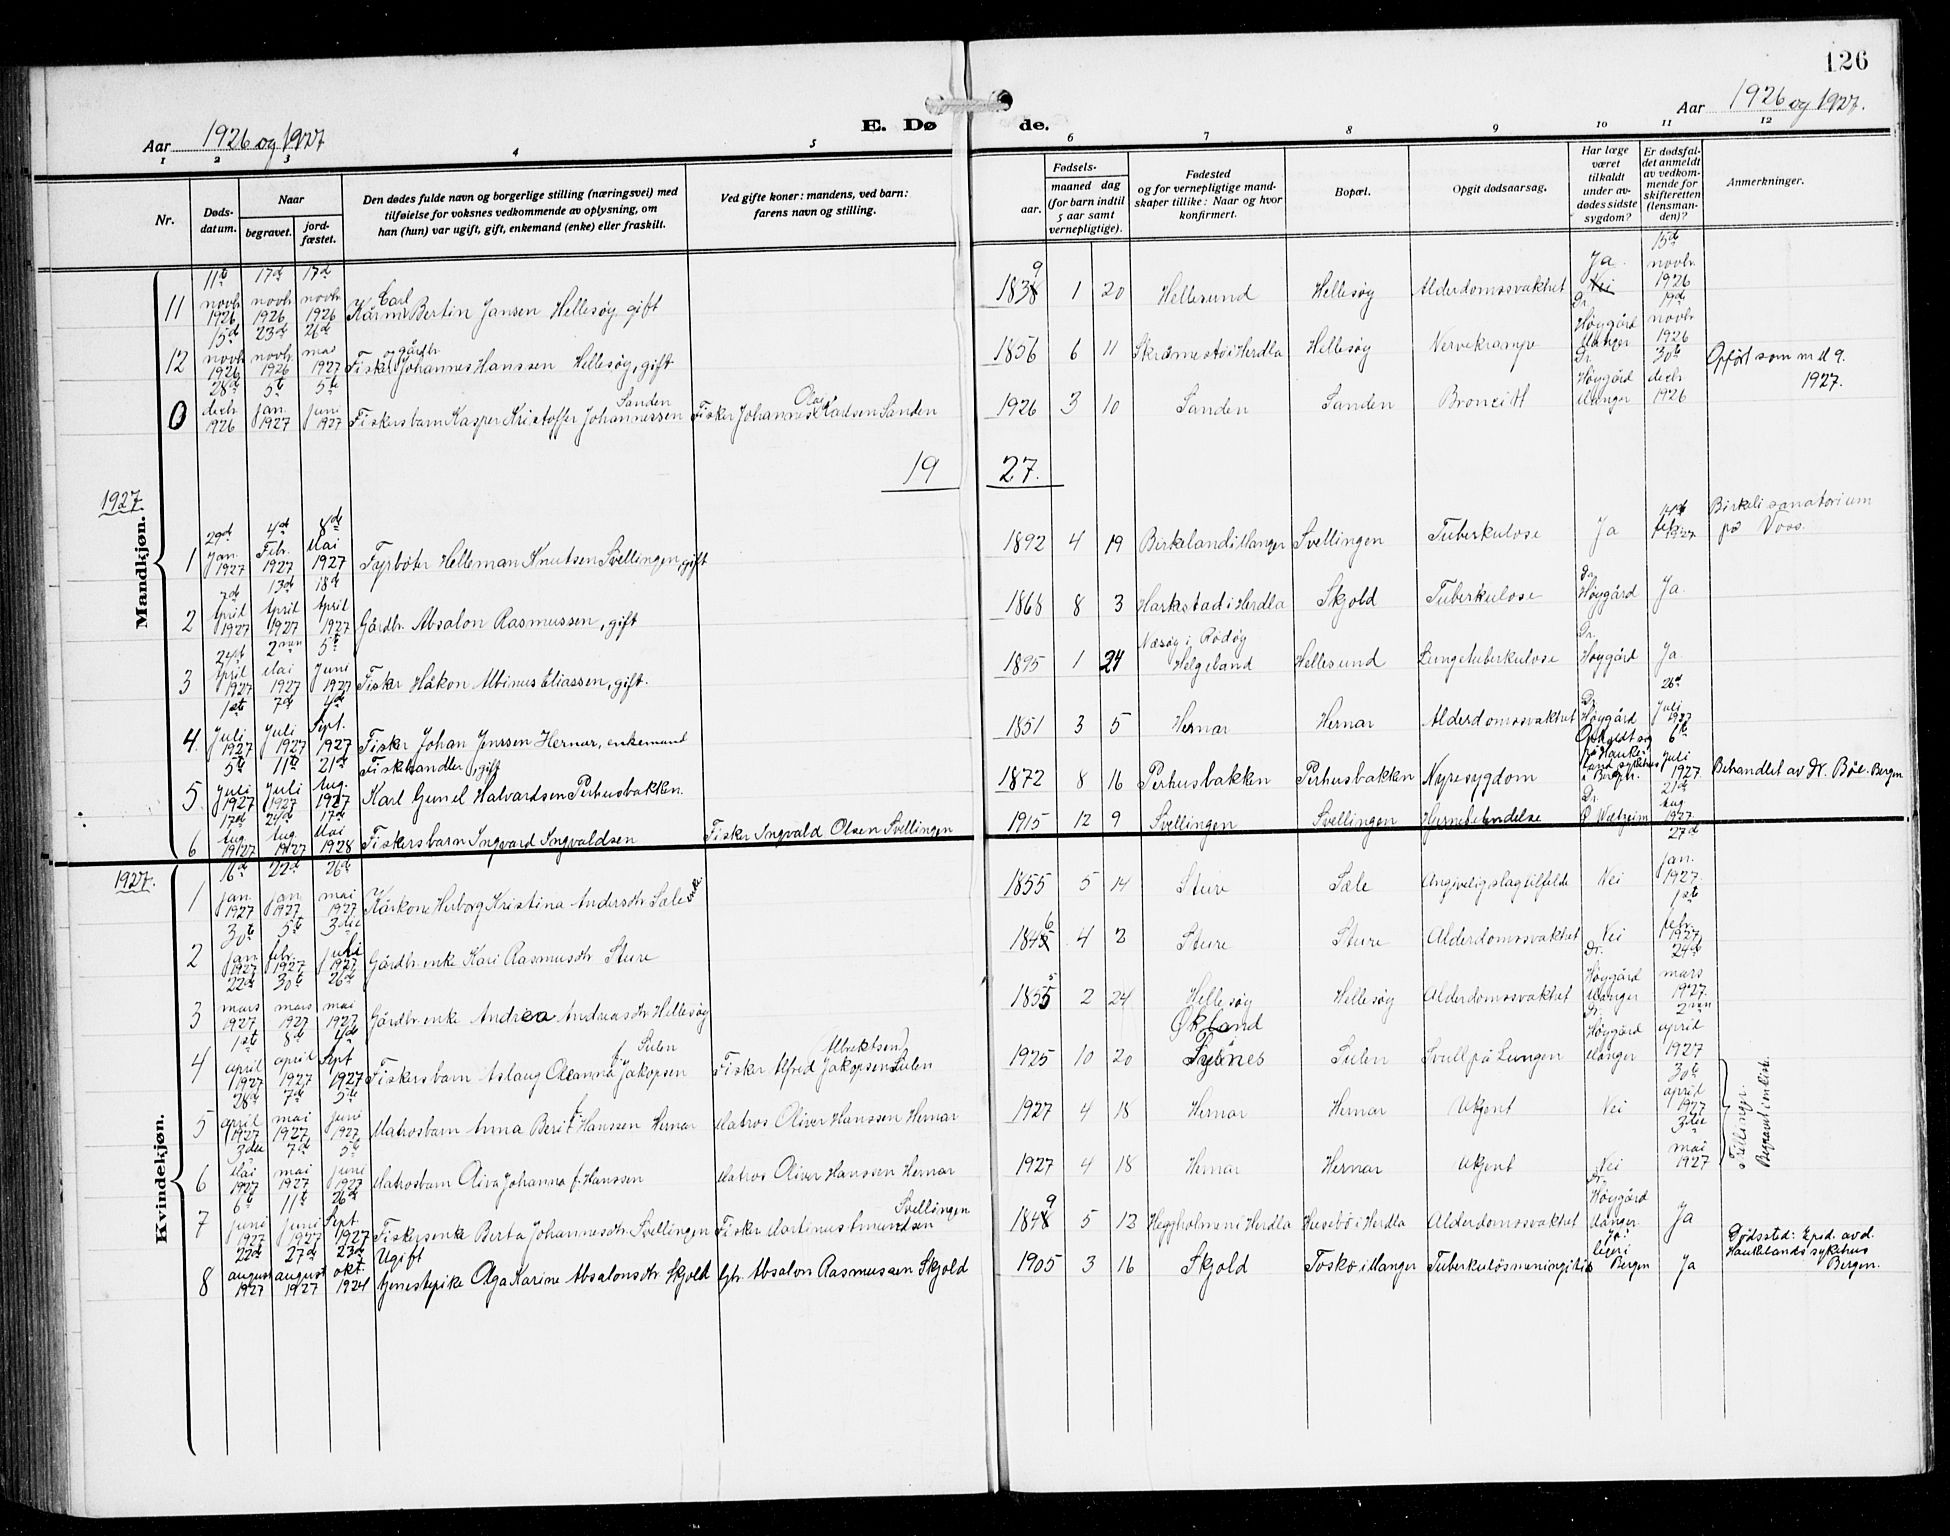 126
Aar 1926 og 1927
E. Dø de.
Aar 1926 og 1927.
1 2 3 4 5 6 7 8 9 10 11 12
Nr.
Døds-datum.
Naar
begravet.
jord-fæstet.
Den dødes fulde navn og borgerlige stilling (næringsvei) med
tilføielse for voksnes vedkommende av oplysning, om
han (hun) var ugift, gift, enkemand (enke) eller fraskilt.
Ved gifte koner: mandens, ved barn:
farens navn og stilling.
Fødsels-
aar.
maaned dag
(for barn indtil
5 aar samt
vernepligtige).
Fødested
og for vernepligtige mand-
skaper tillike: Naar og hvor
konfirmert.
Bopæl.
Opgit dødsaarsag.
Har læge
været
tilkaldt
under av-
dødes sidste
sygdom?
Er dødsfal-
det anmeldt
av vedkom-
mende for
skifteretten
(lensman-
den)?
Anmerkninger.
11 11te novbr 1926 17de novbr 1926 17de novbr 1926 Carl Bertin Jansen Hellesøy, gift 1839 1 20 Hellesund Hellesøy Alderdomssvakhet Ja Nei 15de novbr 1926
12 15de novbr 1926 23de novbr 1926 26de mai 1927 Fisker og gårdbr Johannes Hanssen Hellesøy, gift 1856 6 11 Skråmestø i Herdla Hellesøy Nervekrampe Dr. Høygård Manger 19de novbr 1926
0 28de decbr 1926 5te jan. 1927 5te juni 1927 Fiskersbarn Kasper Kristoffer Johannessen Sanden Fisker Johannes Olai Karlsen Sanden 1926 3 10 Sanden Sanden Broncitt Dr. Høygård Manger 30te decbr 1926 Opført som nr 11 9. 1927.
1927.
Mandkjøn.
1927.
1 29de Jan. 1927 4de Febr. 1927 8de Mai 1927 Fyrbøter Helleman Knutsen Svellingen, gift 1892 4 19 Birkeland i Manger Svellingen Tuberkulose Ja febr. 1927 Birkeli sanatorium på Voss.
2 7de April 1927 13de April 1927 18de April 1927 Gårdbr. Absalon Rasmussen, gift 1868 8 3 Harkestad i Herdla Skjold Tuberkulose Dr. Høygård Ja.
3 24de April 1927 2nen Mai 1927 5te Juni 1927 Fisker Håkon Albinus Eliassen, gift. 1895 1 24 Næsøy i Rødøy Helgeland Hellesund Lungetuberkulose Dr. Høygård Ja
4. 1ste Juli 1927 7de Juli 1927 4de Sept. 1927 Fisker Johan Jenssen Hernar, enkemand 1851 3 5 Hernar Hernar Alderdomssvakhet Dr. Høygård 26de Juli 1927
5. 5te Juli 1927 11te Juli 1927 21de Aug. 1927 Fiskehandler, gift Karl Gunel Halvardsen Perhusbakken. 1872 8 16 Perhusbakken Perhusbakken Nyresygdom Opholdt sig på Haukeland sykehus i Bergen. 6te Juli 1927 Behandlet av dr. Bøe. Bergen
6 17de Aug. 1927 24de Aug. 1927 17de Mai 1928 Fiskersbarn Ingvard Ingvaldsen Fisker Ingvald Olsen Svellingen 1915 12 9 Svellingen Svellingen Hjernebetendelse Dr. 21de Aug 1927.
1927.
Kvindekjøn.
1 16de jan 1927 22de jan 1927 26de mai 1927 Kårkone Herborg Kristina Andersdtr Sæle enke 1855 5 14 Sture Sæle Angivelig slagtilfelde Nei 27de jan. 1927
2 30te jan 1927 5te febr. 1927 3die juli 1927 Gårdbr enke Kari Rasmusdtr Sture 1846 4 2 Sture Sture Alderdomssvakhet Nei 1ste febr. 1927
3 22de mars 1927 30te mars 1927 26de mai 1927 Gårdbr. enke Andrea Andreasdtr Hellesøy 1855 2 24 Hellesøy Hellesøy Alderdomssvakhet Dr. Høygård Manger 24de mars 1927.
4 1ste april 1927 8de april 1927 4de Sept 1927 Fiskersbarn Aslaug Oleanna f. Jakopsen Sulen Fisker Alfred (Albrektsen) Jakopsen Sulen 1925 10 20 Økland Sulen Svull på Lungen Dr. Høygård Manger 2nen april 1927
5 28de april 1927 7de mai 1927 5te juni 1927 Matrosbarn Anna Berit f. Hanssen Hernar Matros Oliver Hanssen Hernar 1927 4 18 Hernar Hernar Ukjent Nei 30te april 1927
6 3die Mai 1927 7de mai 1927 5te juni 1927 Matrosbarn Aiva Johanna f. Hanssen Matros Oliver Hanssen Hernar 1927 4 18 Hernar Hernar Ukjent Nei 3die mai 1927
Trillinger. Begravet i en kiste.
7 6te juni 1927 11te juni 1927 26de Sept 1927 Fiskersenke Berta Johannesdtr Svellingen Fisker Martinus Amundsen Svellingen 1849 5 12 Heggholmen i Herdla Husebø i Herdla Alderdomssvakhet Dr. Høygård Manger Ja
8 22de august 1927 27de august 1927 23de okt. 1927 Ugift tjenestepike Olga Karine Absalonsdtr Skjold Gbr. Absalon Rasmussen Skjold 1905 3 16 Skjold Toskø i Manger Tuberkuløs meningitis Ja læge i Bergen Ja Dødssted: Epid. avd. Haukelands sykehus Bergen.